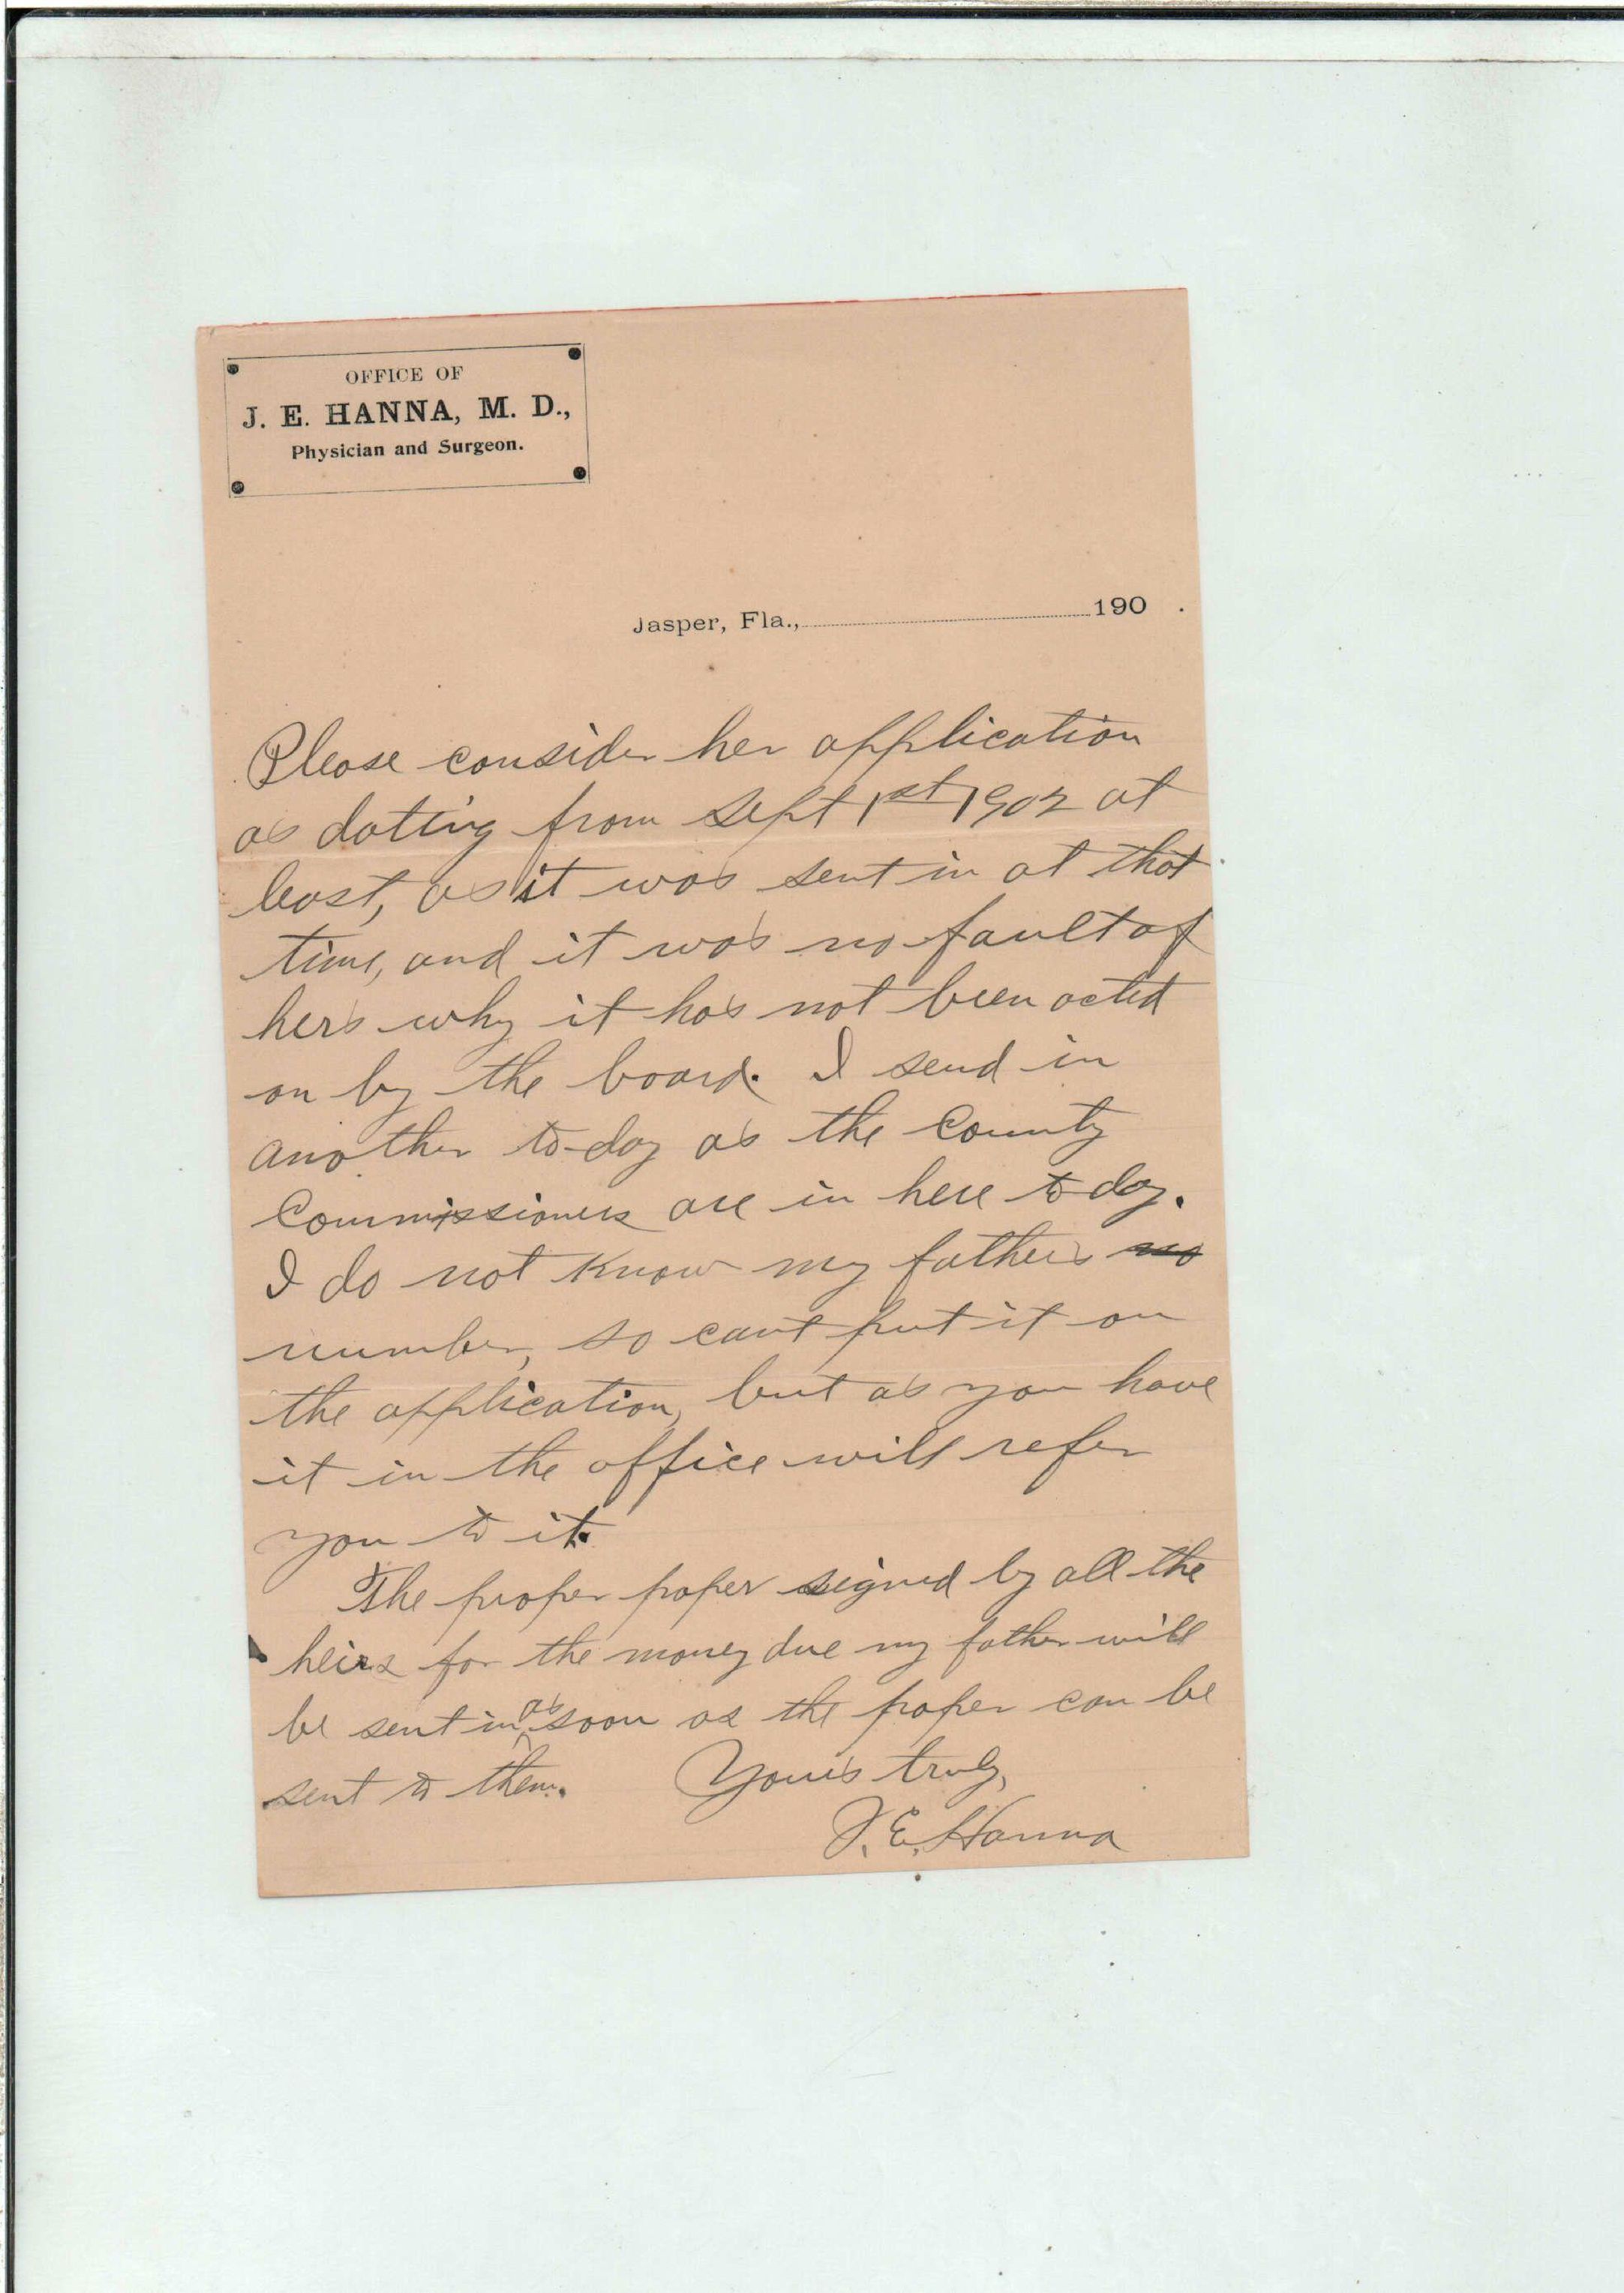 OFFICE OF
J. E. HANNA, M. D.,
Physician and Surgeon.
Jasper, Fla., 190 .
Please consider her application
as dating from Sept 1st 1902 at
least, as it was sent in at that
time, and it was no fault of
hers why it has not been acted
on by the board. I send in
another to-day as the County
Commissioners are in here to day.
I do not know my fathers no
number, so cant put it on
the application, but as you have
it in the office will refer
you to it.
The proper paper signed by all the
heirs for the money due my father will
be sent in as soon as the paper can be
sent to them. Yours truly,
J. E. Hanna